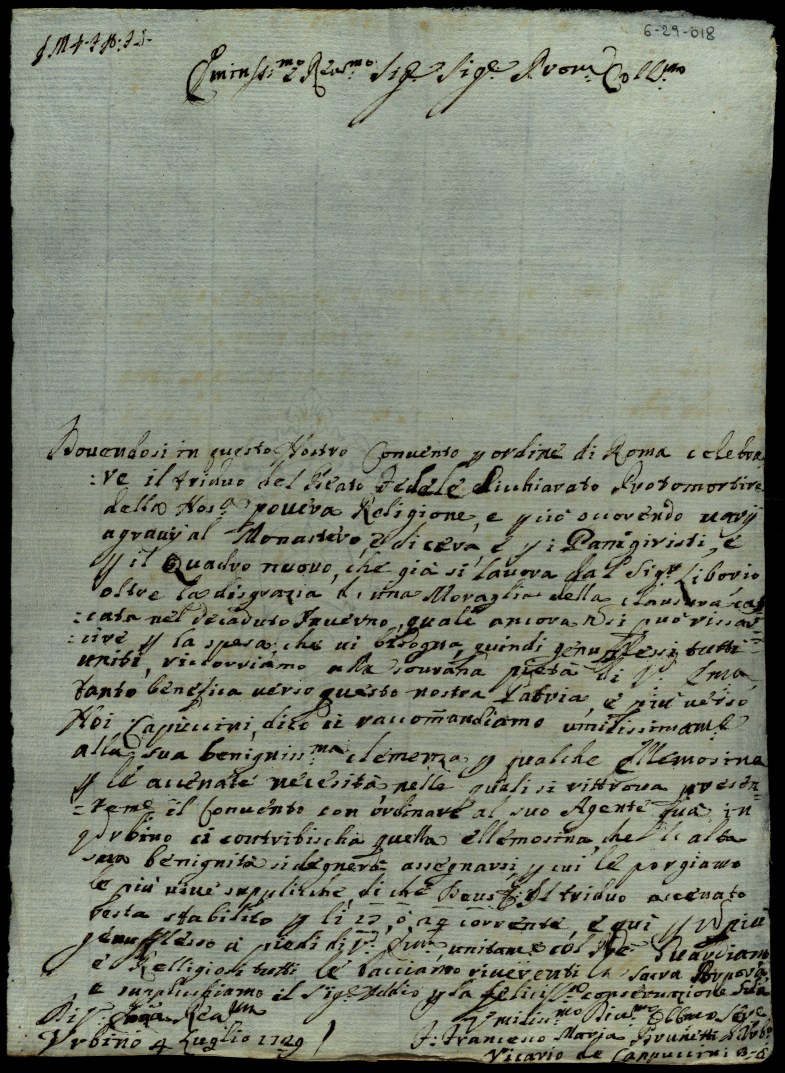 6-29-018
Emin.ssi.mo e Re.mo Sig.e Sig.e Pron. Coll.mo
Dovendosi in questo Nostro Convento p ordine di Roma celebra
:re il triduo del Beato Fedele Dichiarato Protomartire
della Nos.a povera Religione, e p ciò occorendo varij
agravij al Monastero, e di cera, e p i Panegiristi, e
p il Quadro nuovo, che già si lavora dal Sig.r Liborio
oltre la disgrazia di una Moraglia della clausura cas
:cata nel decaduto Inverno, quale ancora non si può rissar
:cire p la spesa, che vi bisogna, quindi genuflessi tutti
uniti, ricorriamo alla sourana pietà di V. Ema
tanto benefica verso questo nostra Patria, e più verso
Noi Capuccini, dico ci raccomandiamo umilissimame
alla sua benigniss.ma clemenza p qualche Ellemosina
p le accenate necessità nelle quali si rittrova presen:
:teme il Convento con ordinare al suo Agente qua in
Urbino ci contribischa quella ellemosina, che l'alta
sua benignità si degnerà assegnarsi, p cui le porgiamo
le più vive suppliche, di che Il triduo accenato
resta stabilito p li 23, o 24 corrente, e qui p più
genuflesso a piedi di V. Em. unitame col Pre Guardiano
e Relligiosi tutti le bacciamo riverenti la Sacra Porpora,
e supplichiamo il Sig.e Iddio p la feliciss.ma conservazione sua
Di V. Ema Rea.ma
Umiliss.mo Obb.mo Ser.e
Urbino 4 Luglio 1729
F. Francesco Maria Brunetti d'Urb.o
Vicario de Cappuccini